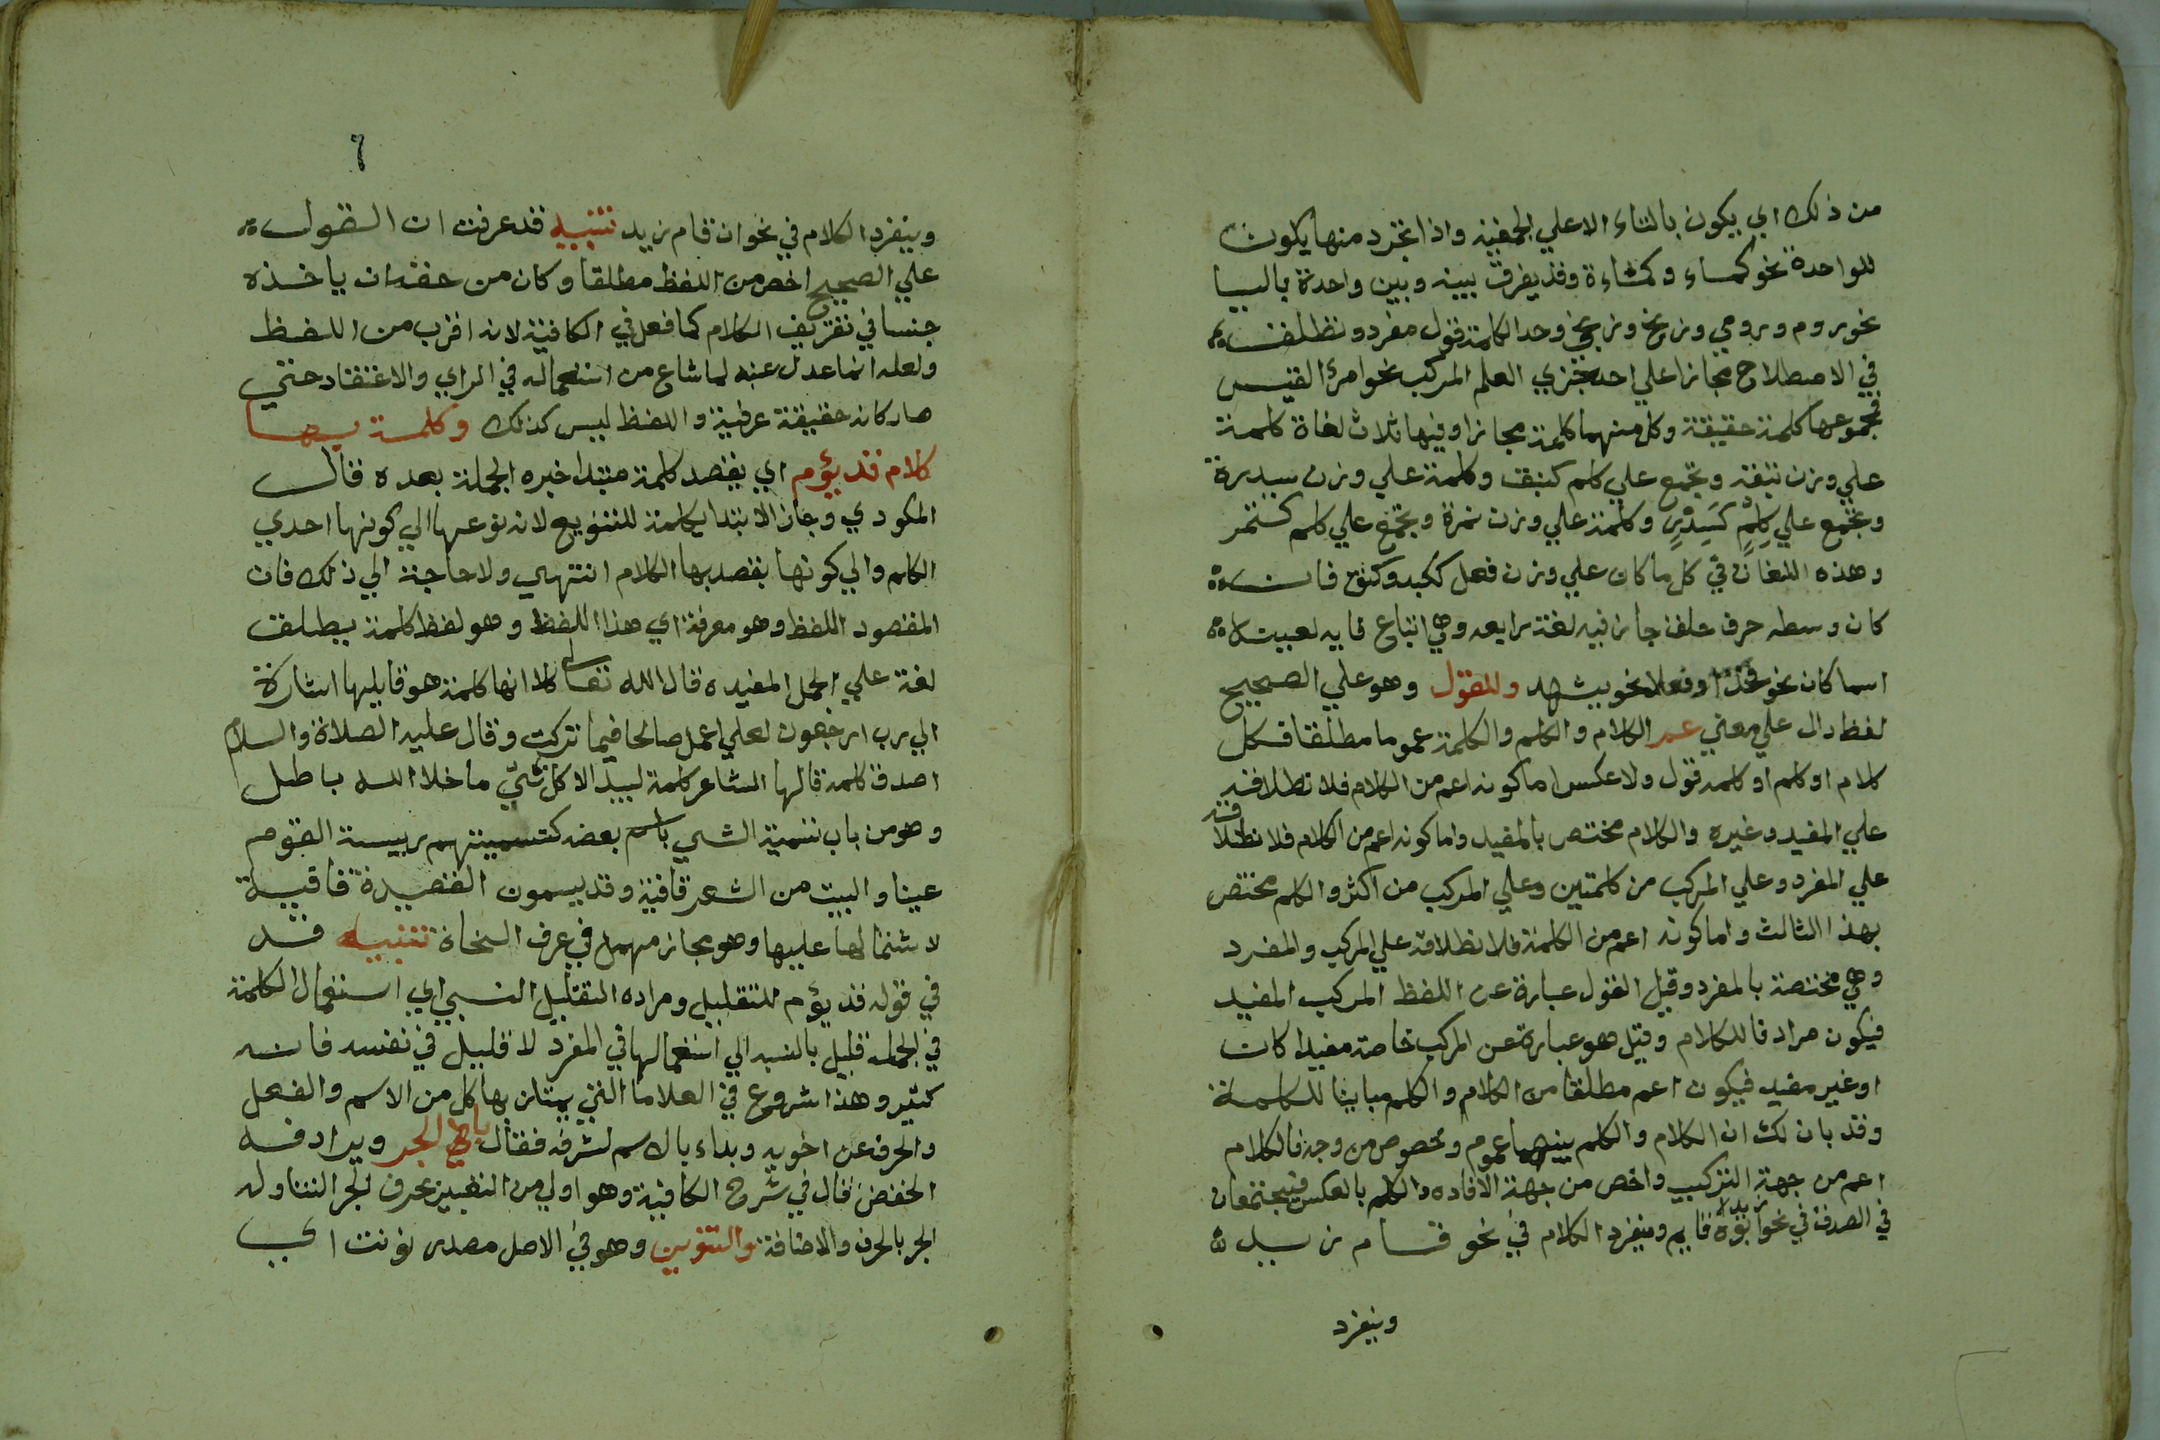 من ذلك اي يكون بالتاء الا علي الجمعية واذا تجرد منها يكون
للواحدة نحو كماء وكماءة وقد يفرق بينه وبين واحدة باليا
نحو روم ورومي وزنج وزنجي وحد الكلمة قول مفرد وتطلق
في الاصطلاح مجازا علي احد جزي العلم المركب نحو امرئ القيس
فمجموعها كلمة حقيقة وكل منهما كلمة مجازا وفيها ثلاث لغاة كلمة
علي وزن نبقة وتجمع علي كلم كنبق وكلمة علي وزن سدرة
وتجمع علي كلم كسدر وكلمة علي وزن تمرة وتجمع علي كلم كتمر
وهذه اللغات في كل ما كان علي وزن فعل ككبد وكتف فان
كان وسطه حرف حلق جاز فيه لغة رابعه وهي اتباع فايه لعينه
اسما كان نحو فخذ او فعلا نحو شهد والقول وهو علي الصحيح
لفظ دال علي معني عم الكلام والكلم والكلمة عموما مطلقا فكل
كلام او كلم او كلمه قول ولا عكس اما كونه اعم من الكلام فلانطلاقه
علي المفيد وغيره والكلام مختص بالمفيد واما كونه اعم من الكلام فلانطلاقه
علي المفرد وعلي المركب من كلمتين وعلي المركب من اكثر والكلم مختص
بهذا الثالث واما كونه اعم من الكلمة فلانطلاقه علي المركب والمفرد
وهي مختصة بالمفرد وقيل القول عبارة عن اللفظ المركب المفيد
فيكون مرادفا للكلام وقيل هو عبارة عن المركب خاصة مفيدا كان
او غير مفيد فيكون اعم مطلقا من الكلام والكلم مباينا للكلمة
وقد بان لك ان الكلام والكلم بينهما عموم وخصوص من وجه فالكلام
اعم من جهة التركيب واخص من جهة الافاده والكلم بالعكس فيجتمعان
في الصدق في نحو زيد ابوه قايم وينفرد الكلام في نحو قام زيد
وينفرد
٦
وينفرد الكلام في نحو ان قام زيد تنبيه قد عرفت ان القول
علي الصحيح اخص من اللفظ مطلقا وكان من حقه ان ياخذه
جنسا في تعريف الكلام كما فعل في الكافية لانه اقرب من اللفظ
ولعله انما عدل عنه لما شاع من استعماله في الراي والاعتقاد حتي
صار كانه حقيقة عرفية واللفظ ليس كذلك وكلمة بها
كلام قد يؤم اي يقصد كلمة مبتدا خبره الجملة بعده قال
المكودي وجاز الابتدا بكلمة للتنويع لانه نوعها الي كونها احدي
الكلم والي كونها يقصد بها الكلام انتهي ولا حاجة الي ذلك فان
المقصود اللفظ وهو معرفة اي هذا اللفظ وهو لفظ كلمة يطلق
لغة علي الجمل المفيده قال الله تعالي كلا انها كلمة هو قايلها اشارة
الي رب ارجعون لعلي اعمل صالحا فيما تركت وقال عليه الصلاة والسلام
اصدق كلمة قالها الشاعر كلمة لبيد الا كل شي ما خلا الله باطل
وهو من باب تسمية الشي باسم بعضه كتسميتهم ربيئة القوم
عينا والبيت من الشعر قافية وقد يسمون القصيدة قافية
لاشتمالها عليها وهو مجاز مهمل في عرف النحاة تنبيه قد
في قوله قد يؤم للتقليل ومراده التقليل النسبي اي استعمال الكلمة
في الجمله قليل بالنسبه الي استعمالها في المفرد لا قليل في نفسه فانه
كثير وهذا شروع في العلاما التي يمتاز بها كل من الاسم والفعل
والحرف عن اخويه وبداء بالاسم لشرفه فقال بالجر ويرادفه
الخفض قال في شرح الكافية وهو اولي من التعبير بحرف الجر لتناوله
الجر بالحرف والاضافة والتنوين وهو في الاصل مصدر نونت اي